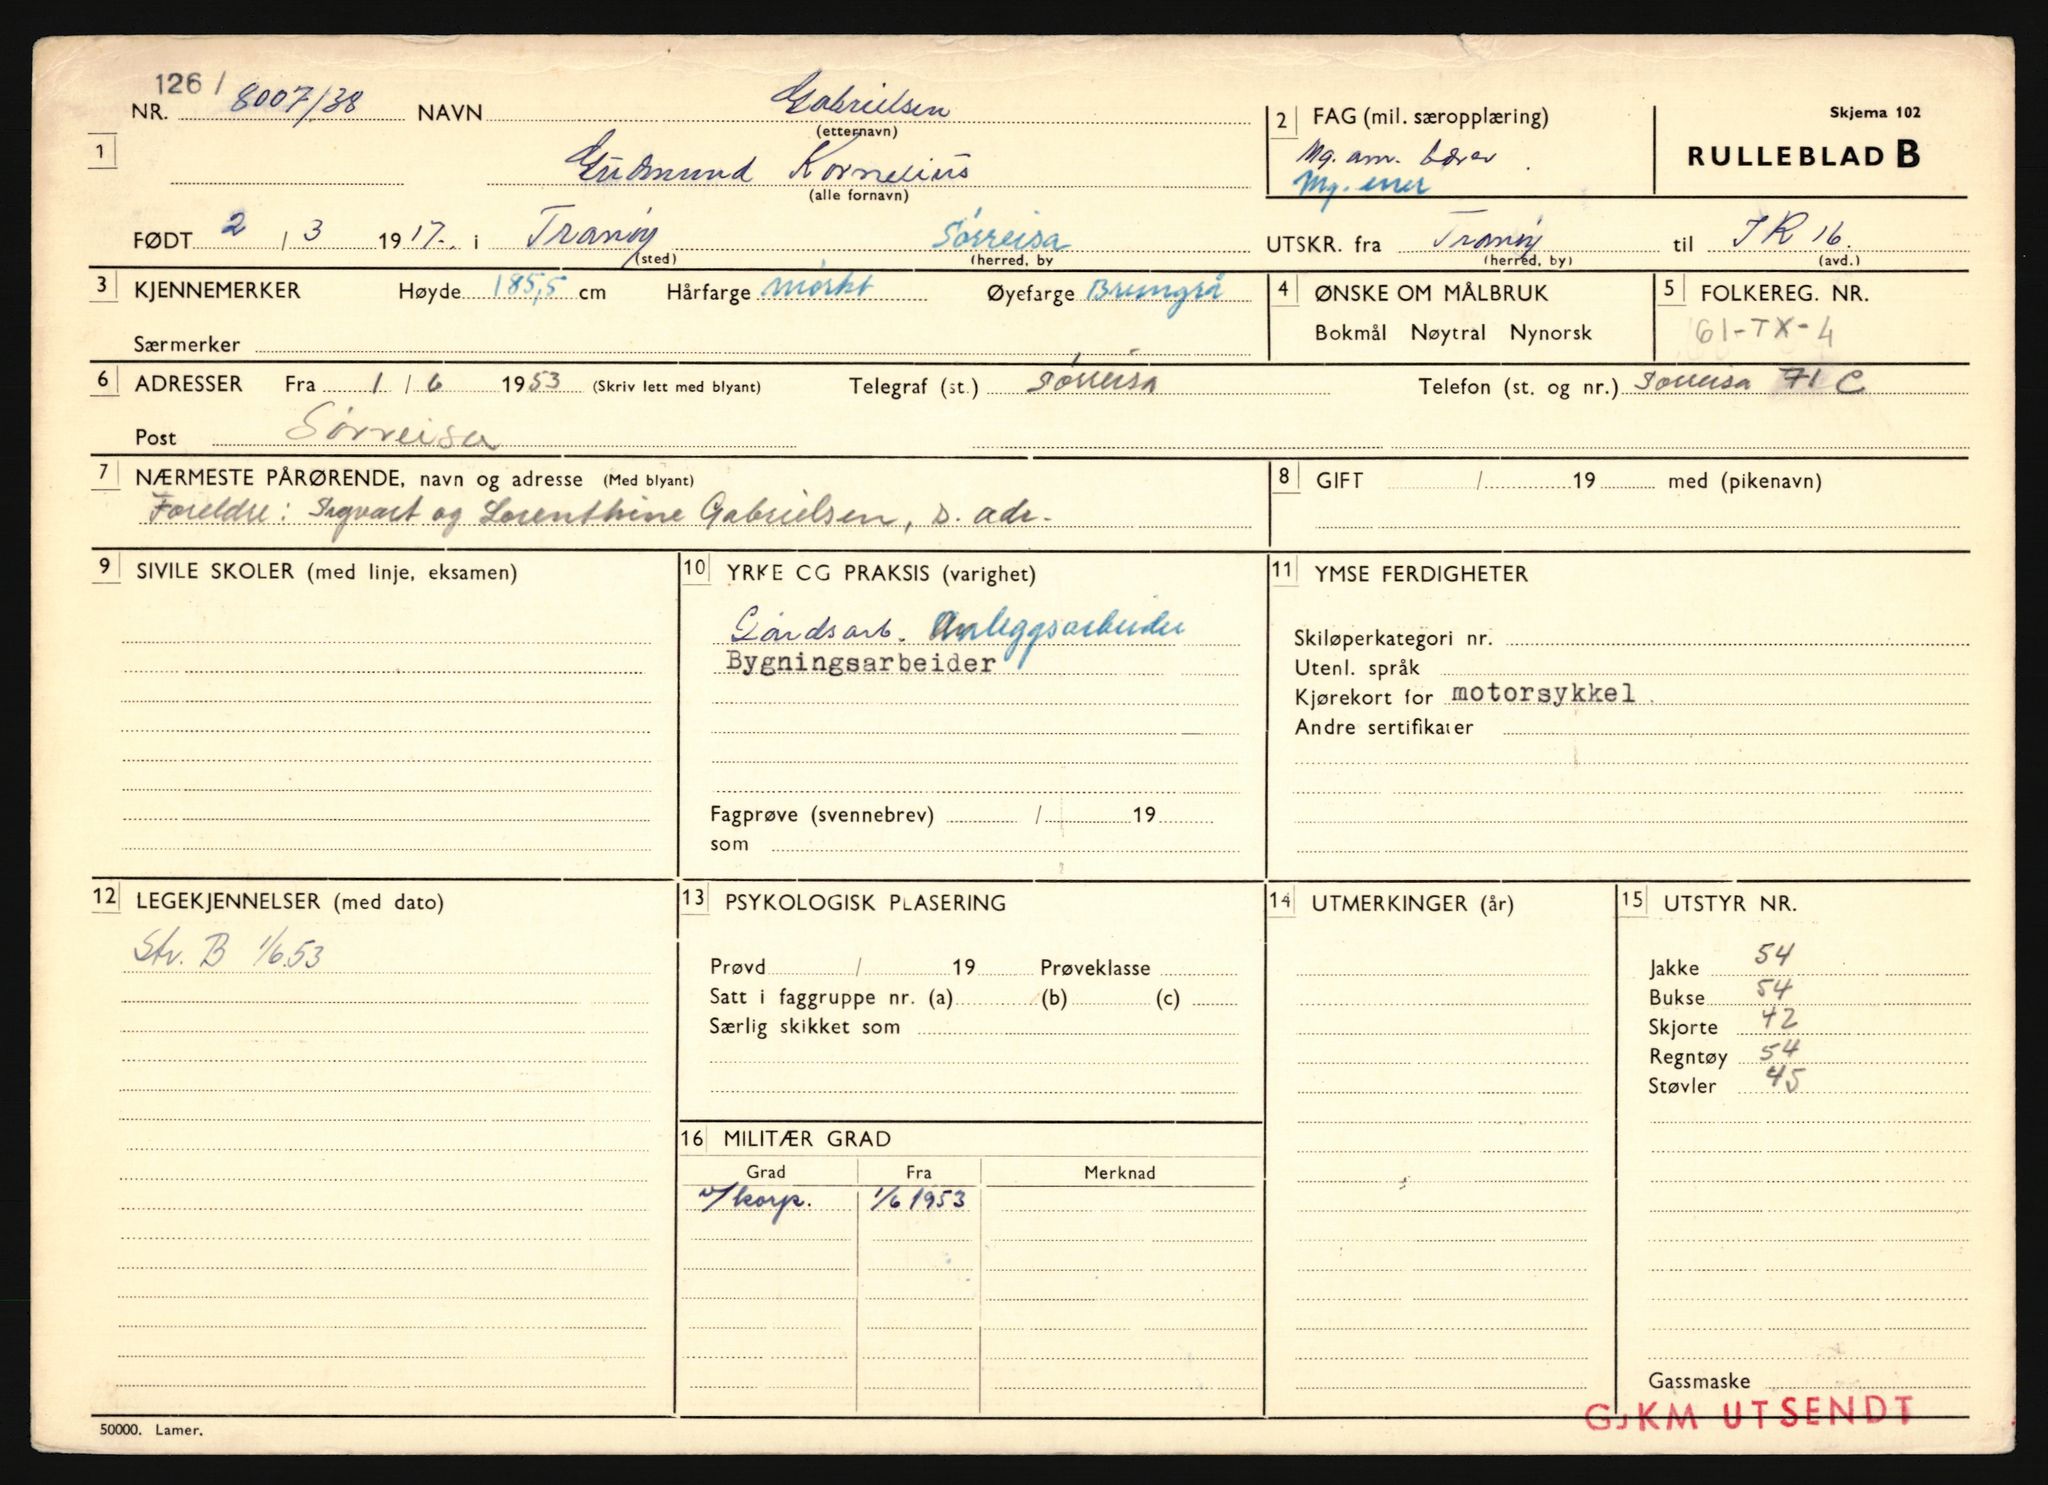 126/
NR. 8007/38 NAVN Gabrielsen
(etternavn)
1 Gudmund Kornelius
(alle fornavn)
2 FAG (mil. særopplæring)
Mg. am. bærer
Mg.
Skjema 102
RULLEBLAD B
FØDT 2 / 3 1917. i Tranøy Sørreisa
(sted) (herred, by
UTSKR. fra Tranøy til IR 16.
(herred, by) (avd.)
3 KJENNEMERKER Høyde 185,5 cm Hårfarge mørkt Øyefarge Brungrå
Særmerker
4 ØNSKE OM MÅLBRUK
Bokmål Nøytral Nynorsk
5 FOLKEREG. NR.
61-TX-4
6 ADRESSER Fra 1 / 6 1953 (Skriv lett med blyant) Telegraf (st.) Sørreisa Telefon (st. og nr.) Sørreisa 71 C
Post Sørreisa
7 NÆRMESTE PÅRØRENDE, navn og adresse (Med blyant)
Foreldre: Ingvart og Lorenthine Gabrielsen, s. adr.
8 GIFT / 19 med (pikenavn)
9 SIVILE SKOLER (med linje, eksamen)
10 YRKE CG PRAKSIS (varighet)
Gårdsarb. Anleggsarbeider
Bygningsarbeider
Fagprøve (svennebrev) / 19
som
11 YMSE FERDIGHETER
Skiløperkategori nr.
Utenl. språk
Kjørekort for motorsykkel.
Andre sertifikater
12 LEGEKJENNELSER (med dato)
Str. B 1/6.53
13 PSYKOLOGISK PLASERING
Prøvd / 19 Prøveklasse
Satt i faggruppe nr. (a) (b) (c)
Særlig skikket som
14 UTMERKINGER (år)
15 UTSTYR NR.
Jakke 54
Bukse 54
Skjorte 42
Regntøy 54
Støvler 45
16 MILITÆR GRAD
Grad Fra Merknad
v/korp. 1/6 1953
Gassmaske
GJKM UTSENDT
50000. Lamer.